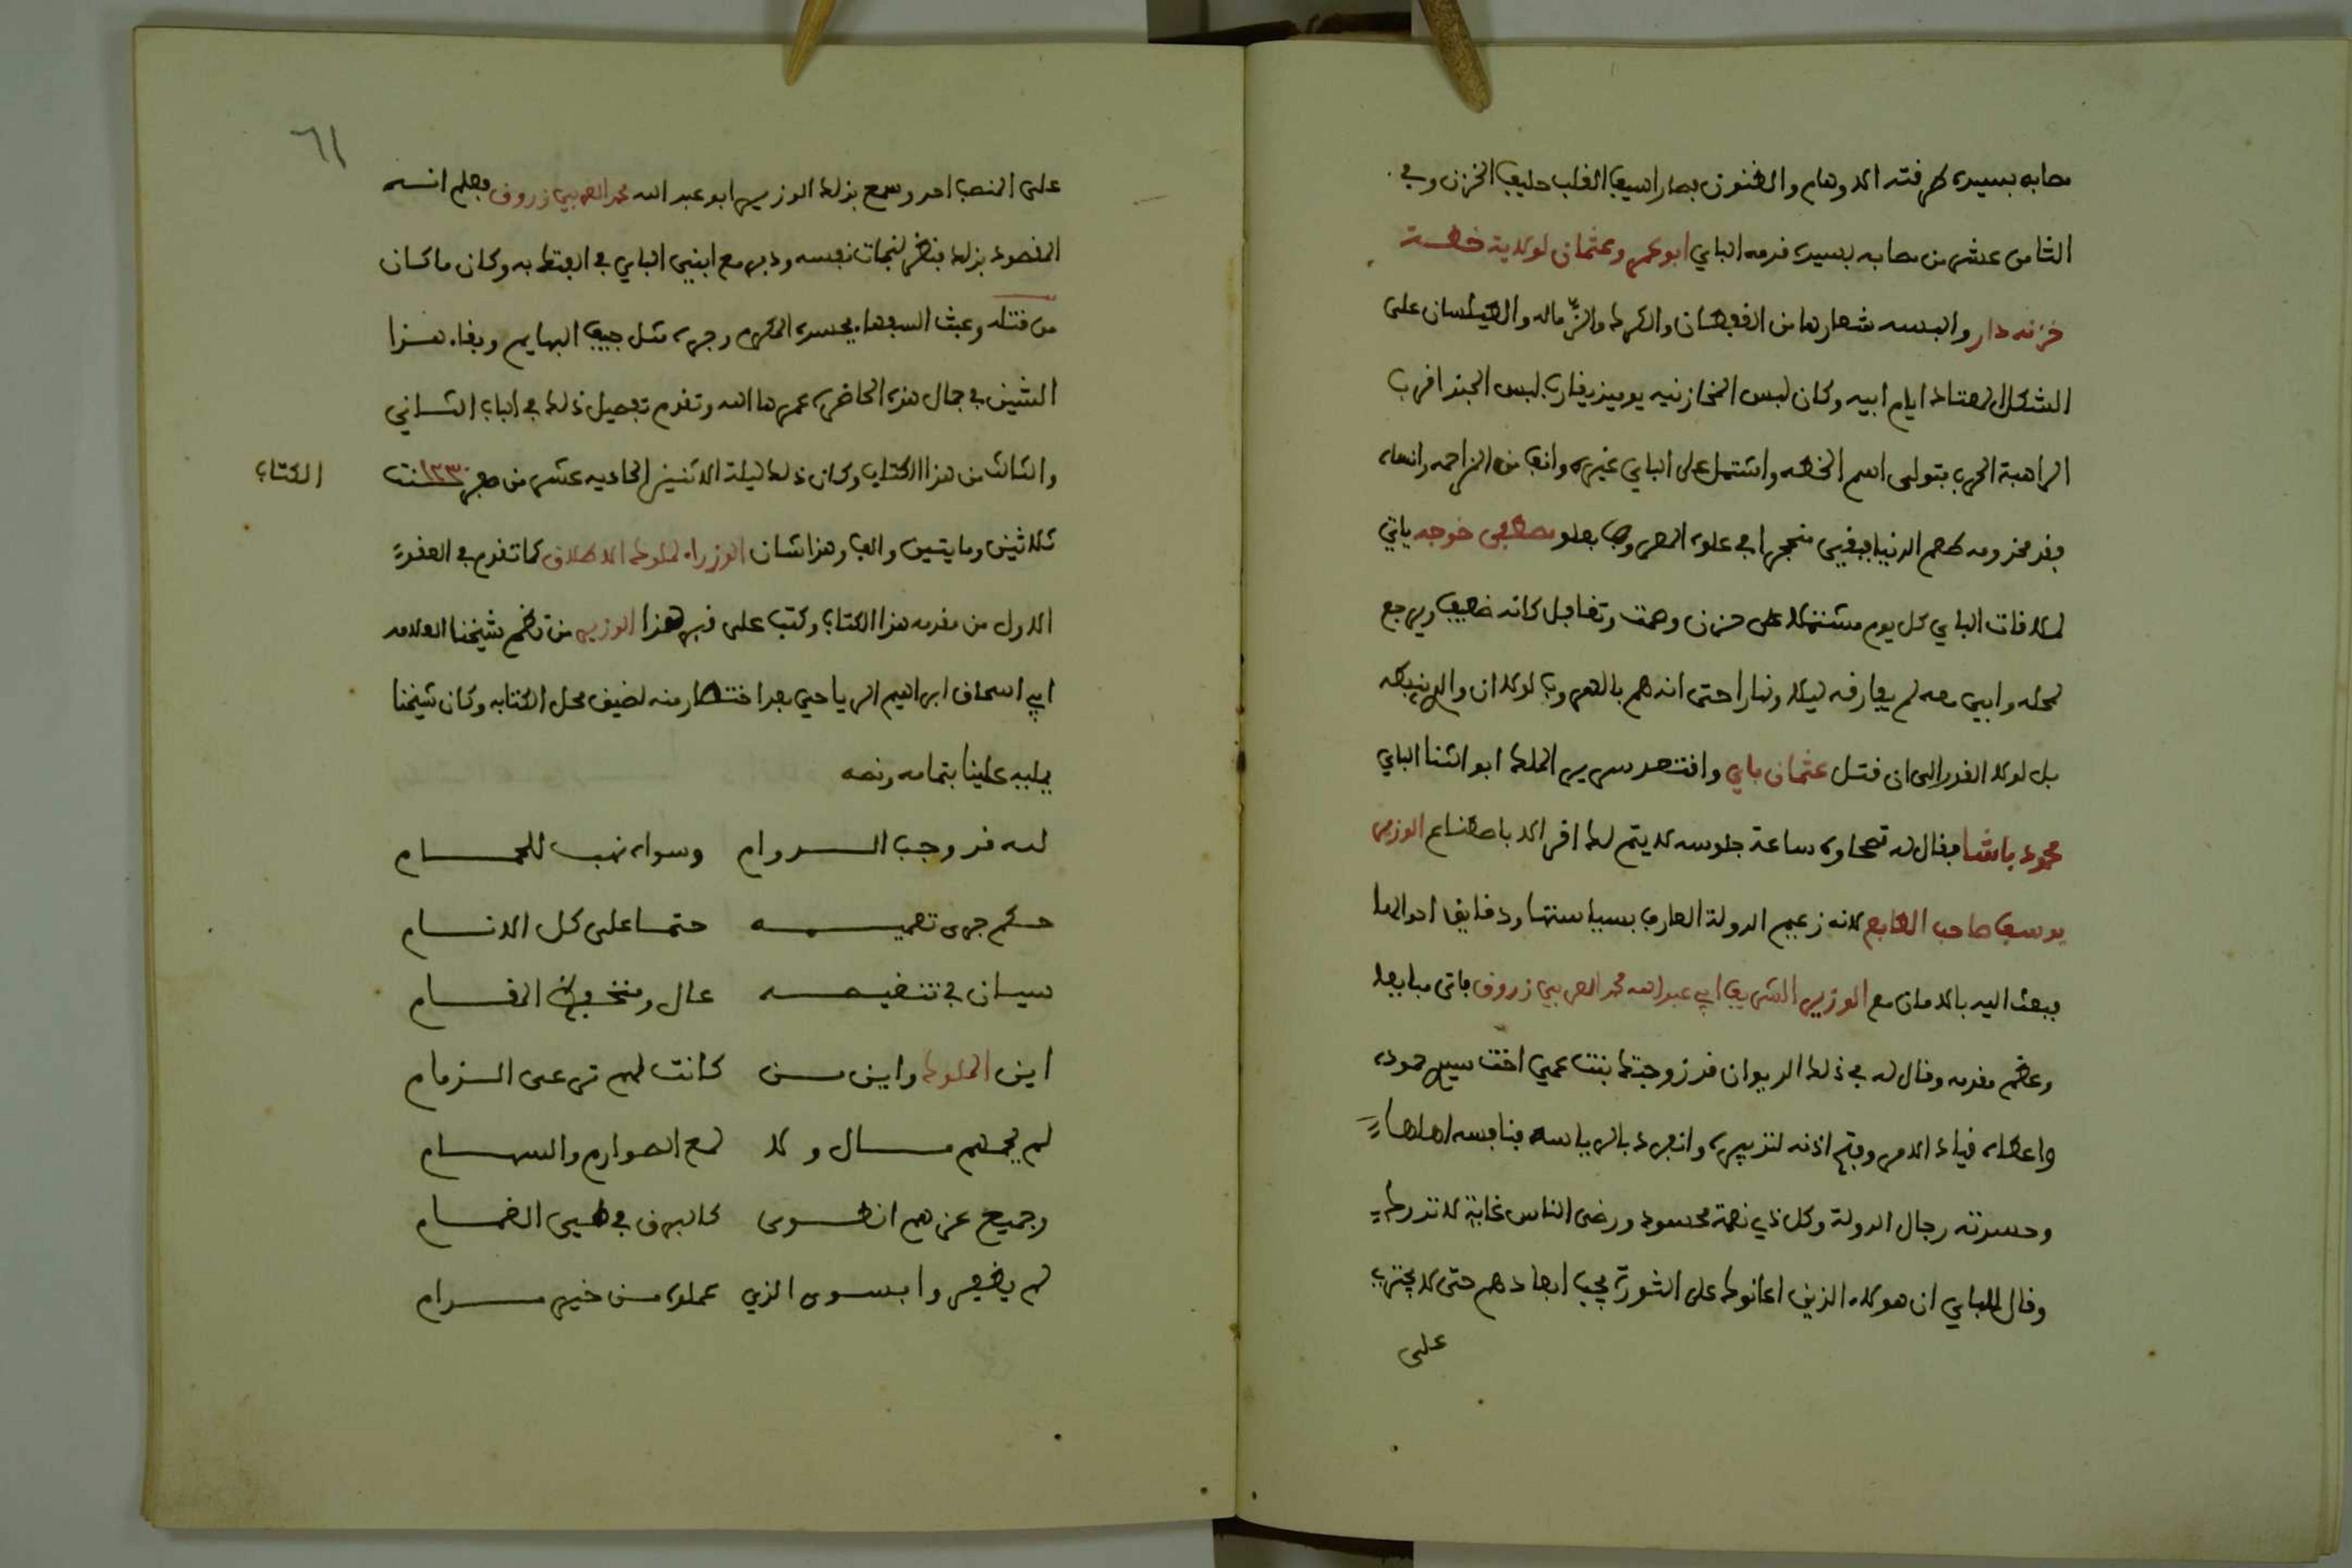 مصابه بسيده طرقته الاوهام والظنون فصار اسيف القلب حليف الحزن وفي
الثامن عشر من مصابه بسيده قدمه الباي ابو عمرو عثمان لولاية خطة
خزنه دار والبسه شعارها من القفطان والكرك والزماله والطيلسان على
الشكل المعتاد ايام ابيه وكان لبس المخازنيه يوميذ يقارب لبس الجند اقرب
الراهبة الحرب فتولى اسم الخطه واشتمل على الباي غيره وانف من المزاحمه وانساه
فقد مخدومه طعم الدنيا فبقي متحجرا في علوه المعروف بعلو مصطفى خوجه ياتي
لملاقات الباي كل يوم مشتملا على حزن وصمت وتغافل كانه ضعيف ويرجع
لمحله وابيى معه لم يفارقه ليلا ونهارا حتى انه هم بالهروب لولا ان والدي نبطه
بل لولا القدر الى ان قتل عثمان باي واقتعد سرير الملك ابو الثنا الباي
محمود باشا فقال له نصحاوه ساعة جلوسه لا يتم لك امر الا باصطناع الوزير
يوسف صاحب الطابع لانه زعيم الدولة العارف بسياستها ودقايق احوالها
فبعث اليه بالامان مع الوزير الشريف ابي عبد الله محمد العربي زروق فاتى مبايعا
وعظم مقدمه وقال له في ذلك الديوان قد زوجتك بنت عمي اخت سيدي حموده
واعطاه قياد الامر وفتح اذنه لتدبيره وانفرد بالرياسه فنافسه اهلها
وحسدته رجال الدولة وكل ذي نعمة محسود ورضى الناس غاية لا تدرك
وقال للباي ان هولاء الذين اعانوك على الثورة يجب ابعادهم حتى لا يجترئ
على
٦١
على المنصب احد وسمع بذلك الوزير ابو عبد الله محمد العربي زروق فعلم انه
المقصود بذلك فنظر لنجات نفسه ودبر مع ابني الباي في الفتك به وكان ما كان
من قتله وعبث السفهاء بجسده المكرم وجره مثل جيف البهايم وبقاء هذا
الشين في جمال هذه الحاضرة عمرها الله وتقدم تفصيل ذلك في الباب الثاني
والثالث من هذا الكتاب وكان ذلك ليلة الاثنين الحاديه عشر من صفر ١٢٣٠ سنت
الكتاب
ثلاثين ومايتين والف وهذا شان الوزراء لملوك الاطلاق كما تقدم في العقد
الاول من مقدمه هذا الكتاب وكتب على قبر هذا الوزير من نظم شيخنا العلامه
ابي اسحاق ابراهيم الرياحي بعد اختصار منه لضيق محل الكتابه وكان شيخنا
يمليه علينا بتمامه ونصه
لله قد وجب الدوام وسواه نهب للحمام
حكم جرى تعميمه حتما على كل الانام
سيان في تنفيصه عال ومنخفض المقام
اين الملوك واين من كانت لهم ترعى الذمام
لم يحمهم مال ولا لمع الصوارم والسهام
وجميع عزهم انطوى كالبرق في طي الغمام
لم يظفروا بسوى الذي عملوه من خير مرام